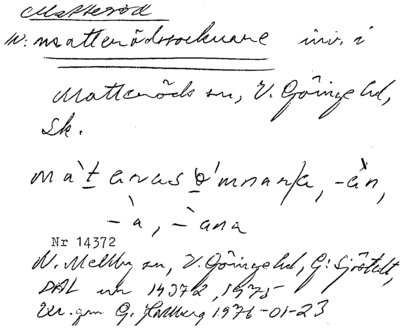 Matteröd
w: matterödssocknare inv. i
Matteröds sn, V. Göinge hd,
Sk.
-àn,
-à, -àna
Nr 14372
N. Mellby sn, V. Göinge hd, G. Sjöstedt,
DAL nr 14372, 1975
gm G. Hallberg 1976-01-23